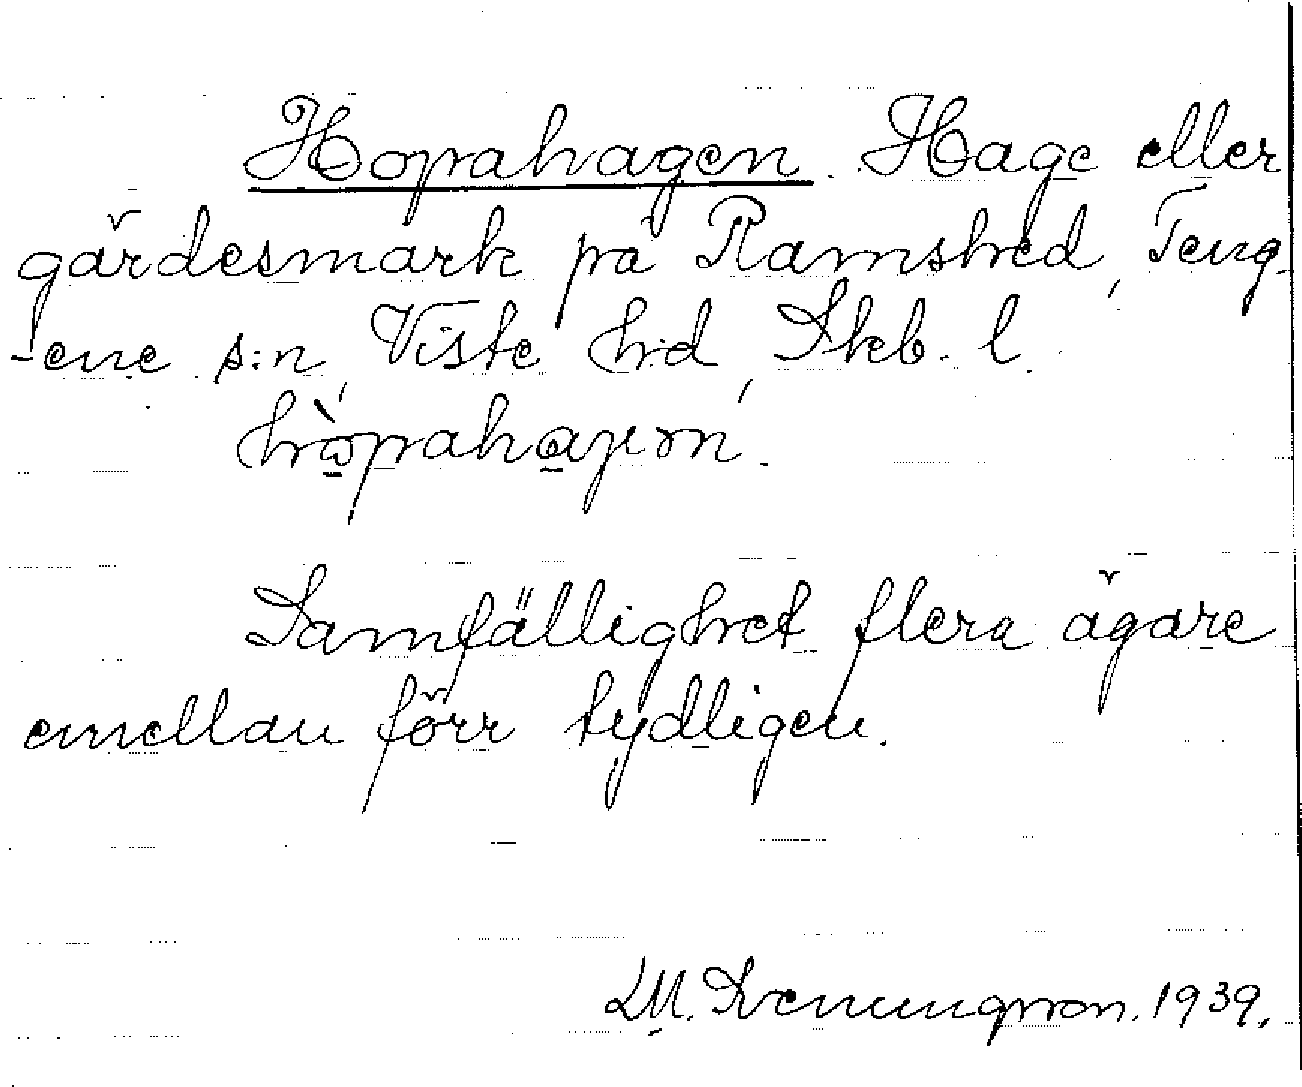 Hopahagen. Hage eller
gärdesmark på Ramshed, Teng-
-ene s:n, Viste h:d, Skb. l.
hò̱paha̱γ
Samfällighet flera ägare
emellan förr tydligen.
D.M. Svenungsson. 1939.